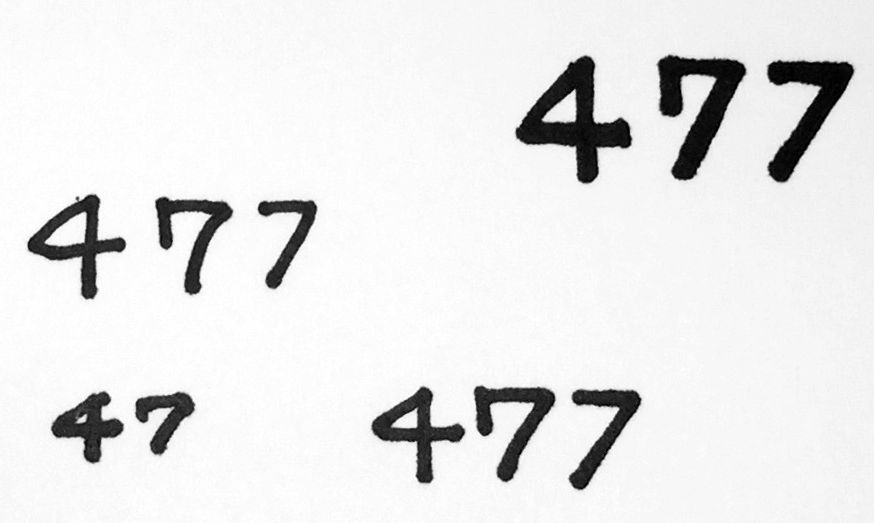 477
477
47 477